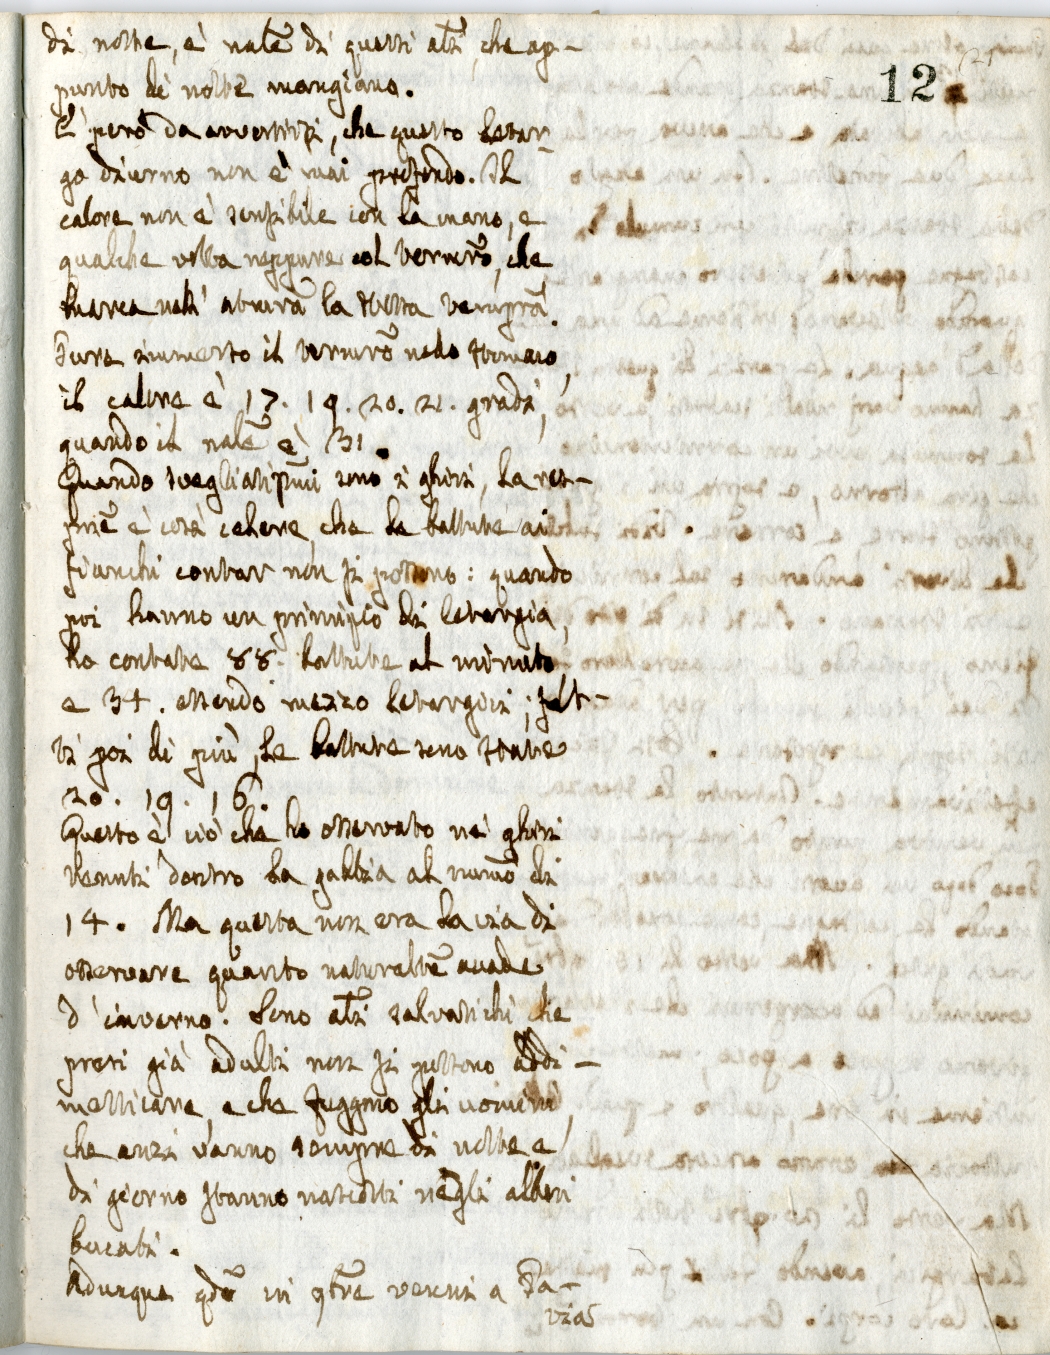 12
di notte, è natle di questi atri, che ap-
punto di notte mangiano.
E però da avvertirsi, che questo letar-
go diurno non è mai profondo. Il
calore non è sensibile con la mano, e
qualche volta neppure col termro, che
marca nell' la stessa temprã.
Pure immerso il termro nello stomaco,
il calore è 17. 19. 20. 21. gradi,
quando il nale è 31.
Quando svegliatissimi sono i ghiri, la res-
pne è così celere che le battute ai
fianchi contar non si possono: quando
poi hanno un principio di letargia,
ho contate 88. battute al minuto,
e 34. essendo mezzo letargici; fat-
ti poi di più, le battute sono state
20. 19. 16.
Questo è ciò che ho osservato nei ghiri
tenuti dentro la gabbia al numo di
14. Ma questa non era la via di
osservare quanto naturalte accade
d'inverno. Sono atri salvatichi che
presi già adulti non si possono addi-
mesticare, e che fuggono gli uomini,
che anzi vanno sempre di notte e
di giorno stanno nascosti negli alberi
bucati.
Adunque qdo in 9tre venni a Pa-
via